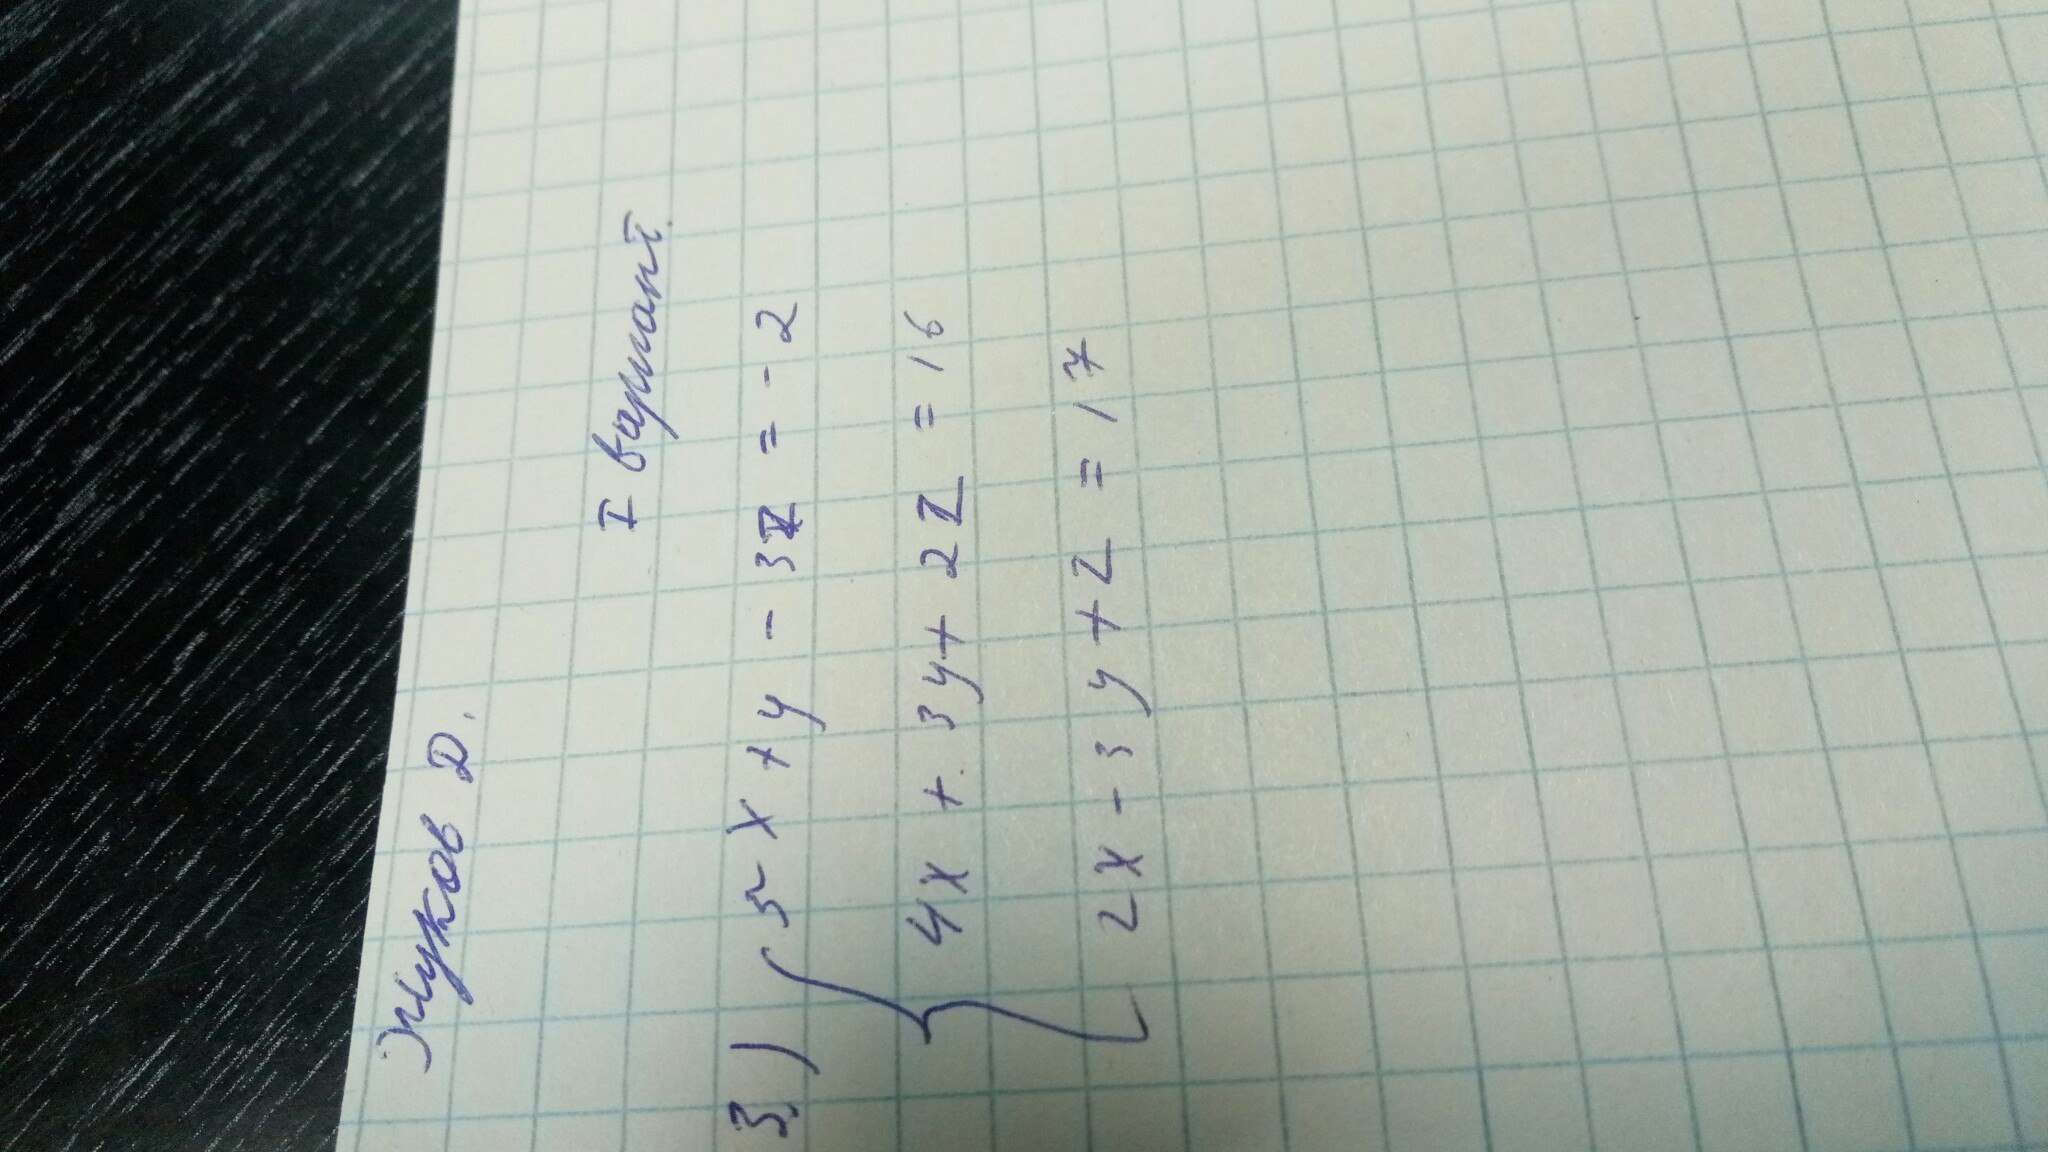 Жуков D.
I вариант.
3.) { 5x + y - 3z = - 2
4x + 3y + 2z = 16
2x - 3y + z = 17